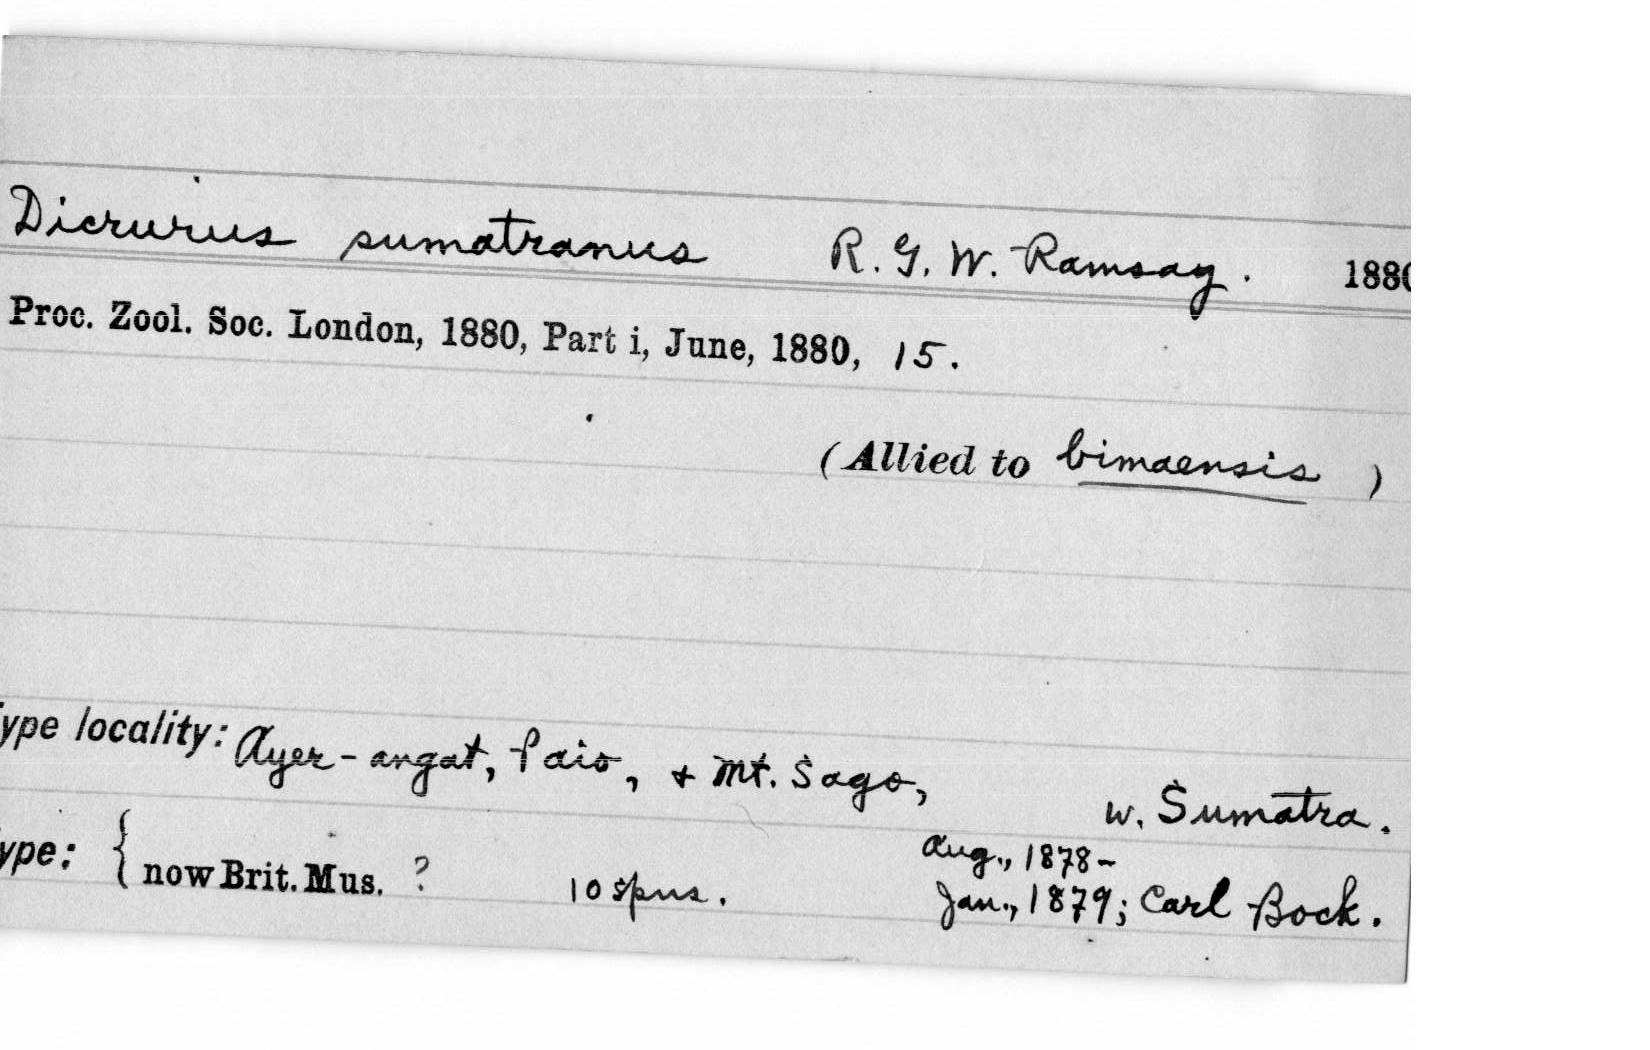 Dicrurus sumatranus R. G. W. Ramsay. 1880
Proc. Zool. Soc. London, 1880, Part i, June, 1880, 15.
(Allied to bimaensis )
ype locality: Ayer-angat, Paio, + Mt. Sago,
W. Sumatra.
Aug., 1878-
ype: { now Brit. Mus. ? 10 spns. Jan., 1879; Carl Bock.